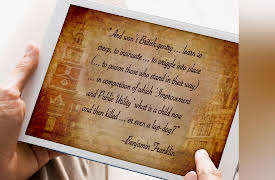 "And won't British gentry ... learn to
creep, to insinuate ... to wriggle into place
(... to poison those who stand in their way)
... in competition of which 'Improvement
and Public Utility' what is a child now
and then killed ... or even a lap-dog?"
-Benjamin Franklin